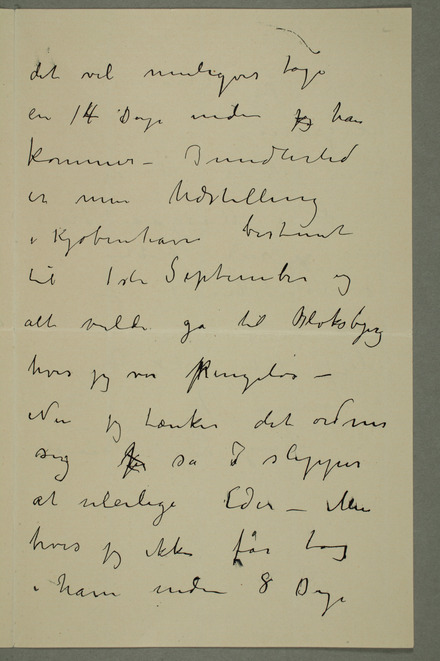 det vil muligvis tage
en 14 Dage inden jeg han
kommer – Imidlertid
er min Udstilling
i Kjøbenhavn bestemt
til 1ste September og
alt vilde gå til Bloksbjerg
hvis jeg var pengeløs –
Nu jeg tænker det ordner
sig så I slipper
at uleilige Eder – Men
hvis jeg ikke får tag
i ham inden 8 Dage